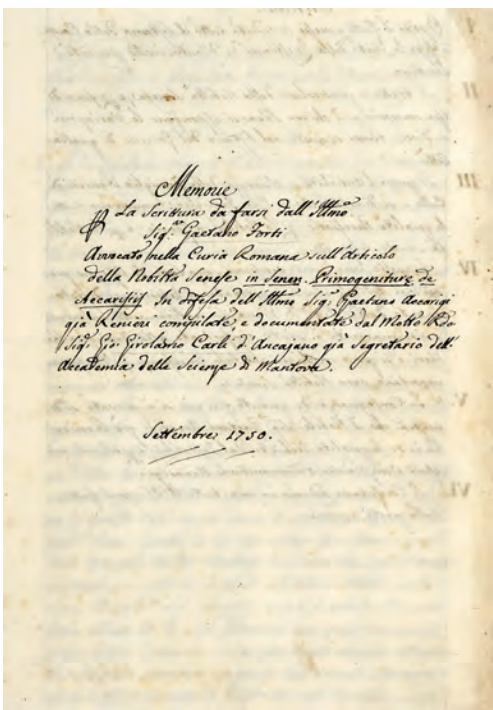 Memorie
P La Scrittura da farsi dall'Illmo
Sig.r Gaetano Forti
Avvocato nella Curia Romana sull'articolo
della Nobiltà Senese in Senen. Primogeniturę de
Accarisiis In difesa dell'Illmo Sig. Gaetano Accarigi
già Renieri compilate, e documentate dal Molto Rdo
Sig. Gio: Girolamo Carli d'Ancajano già Segretario dell'
Accademia delle Scienze di Mantova.
Settembre 1750.
II
III
IV
V
VI